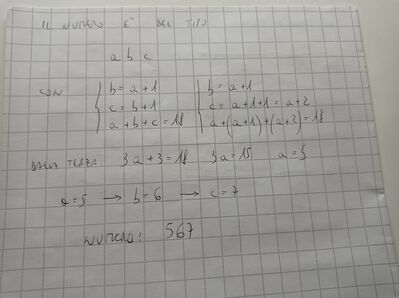 IL NUMERO E' DEL TIPO
a b c
CON { b = a+1 { b = a+1
c = b+1 c = a+1+1 = a+2
a+b+c = 18 a+(a+1)+(a+2) = 18
DALLA TERZA: 3a+3=18 3a=15 a=5
a=5 → b=6 → c=7
NUMERO: 567